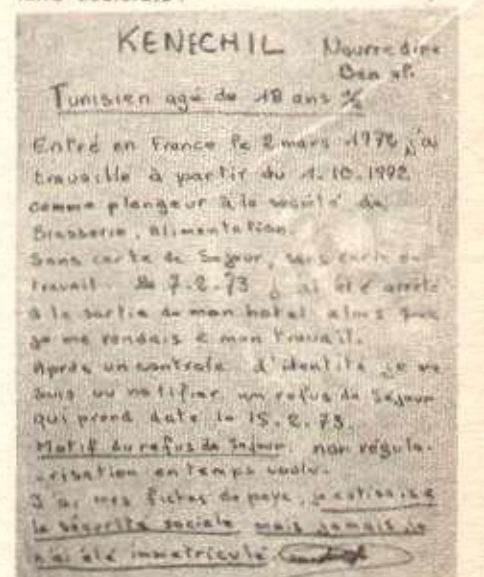 KENECHIL Nourredine
Ben
Tunisien agé de 18 ans ½
Entré en France le 2 mars 1972 j'ai
travaillé à partir du 1.10.1992
comme plongeur à la société de
Brasserie, alimentation.
Sans carte de Sejour, sans carte de
travail. Le 7.2.73 j'ai été arreté
à la sortie de mon hotel alors que
je me rendais à mon travail.
Après un controle d'identité je me
suis vu notifier un refus de Sejour
qui prend date le 15.2.73.
Motif du refus de Sejour non régula-
-risation en temps voulu.
J'ai mes fiches de paye, je cotisais à
la sécurité sociale mais jamais je
n'ai été immatriculé